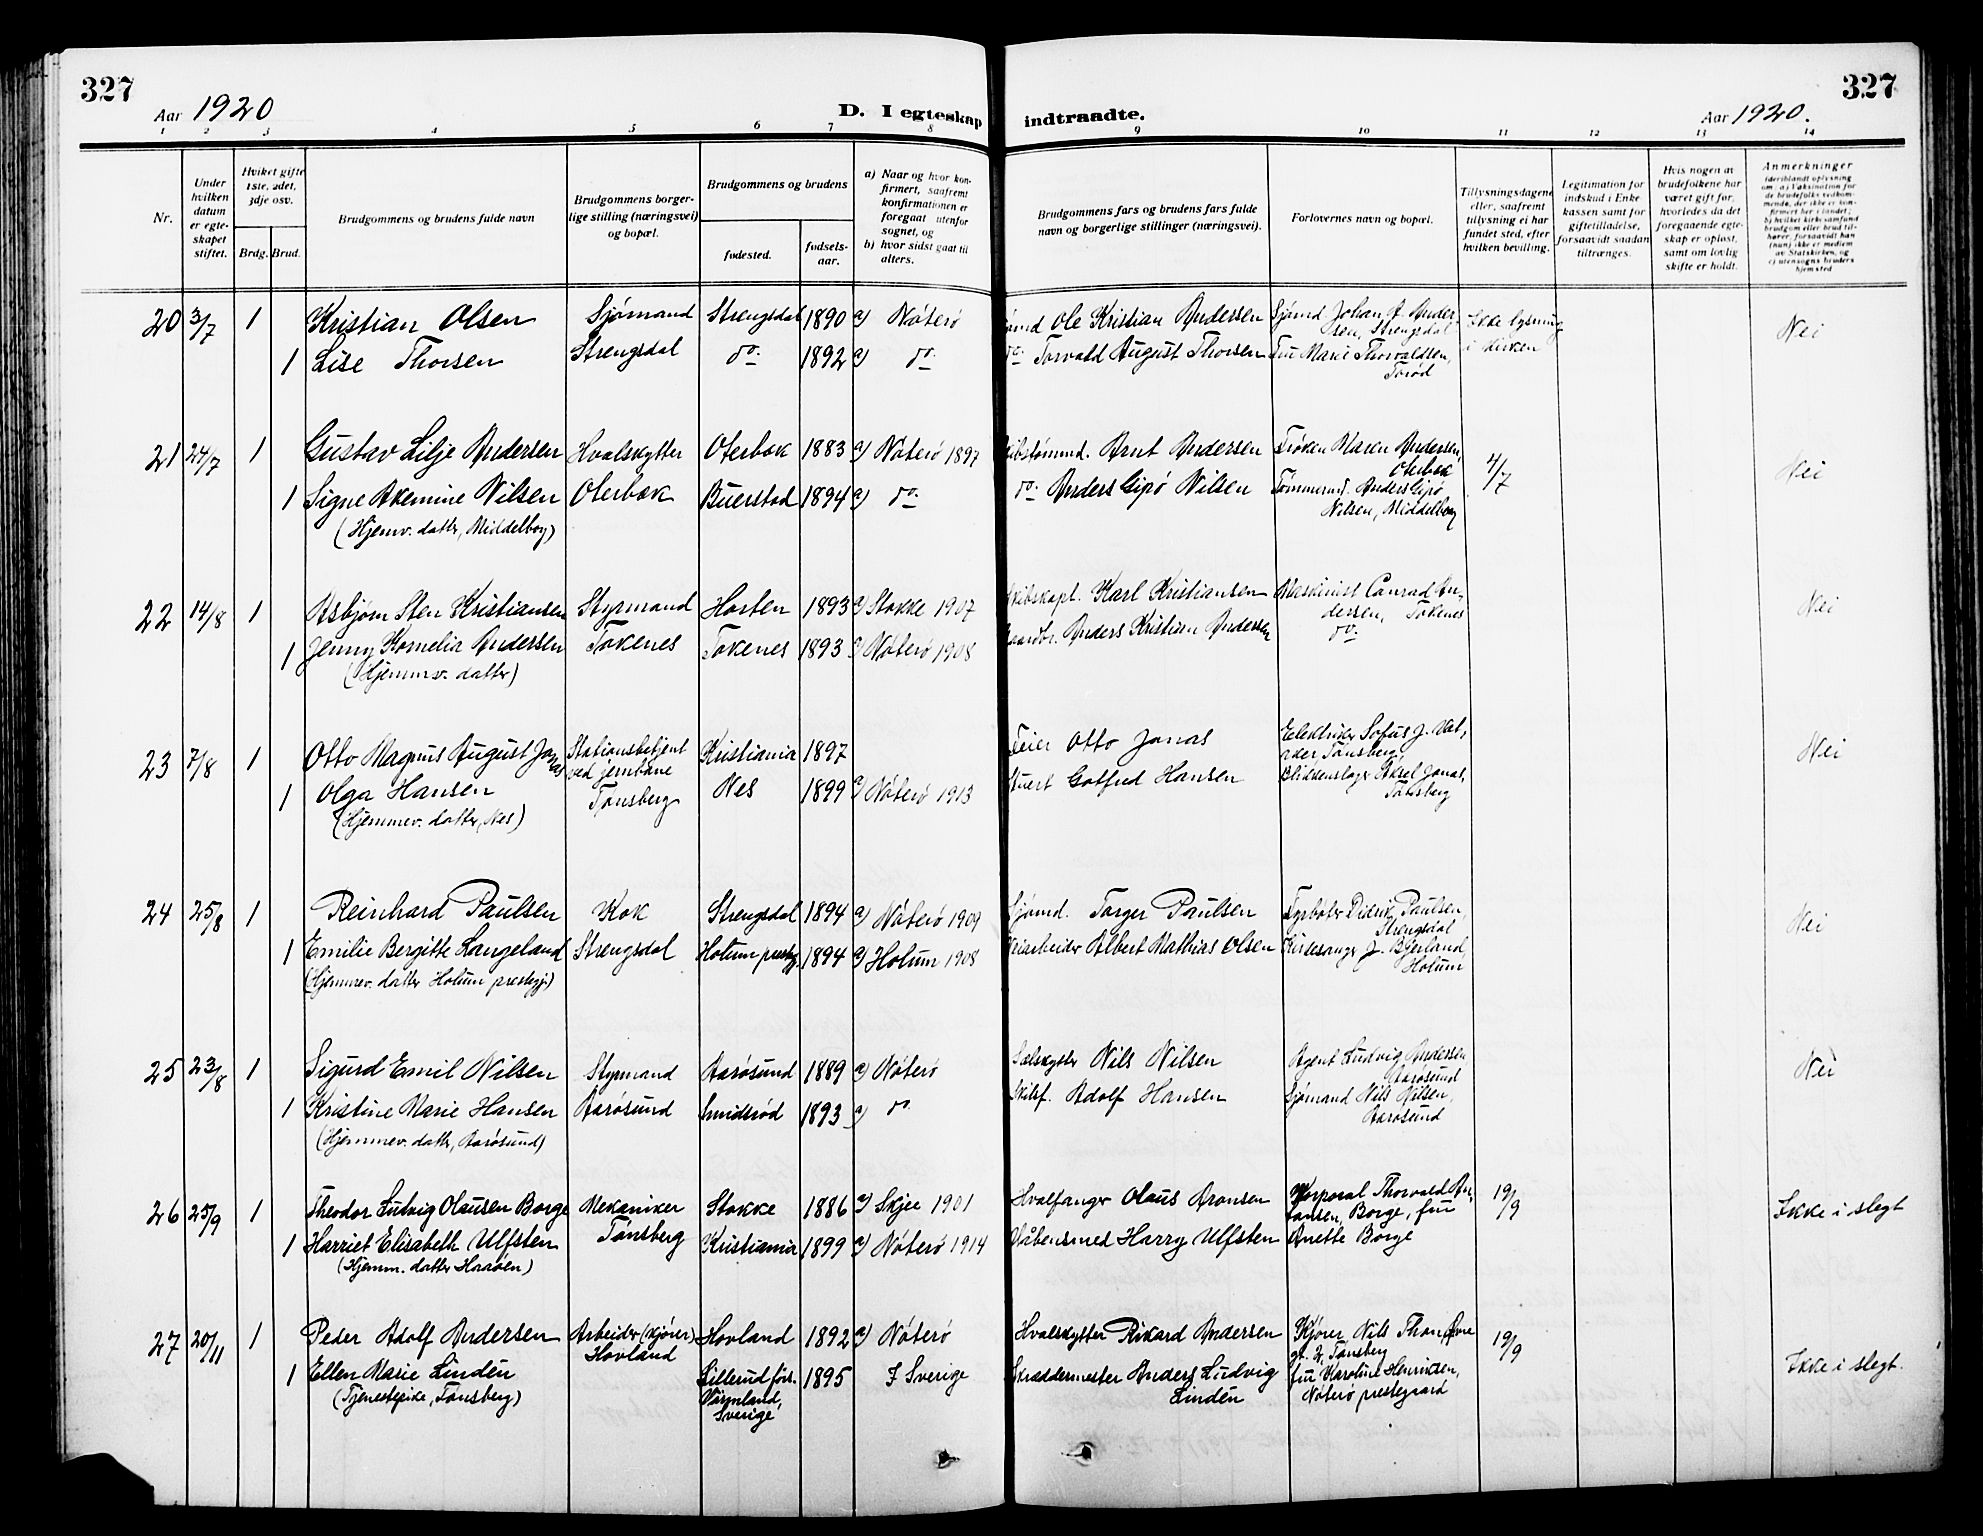 327
Aar 1920
D. I egteskap indtraadte.
Aar 1920.
327
1 2 3 4 5 6 7 8 9 10 11 12 13 14
Nr.
Under hvilken datum er egteskapet stiftet.
Hvilket gifte 1ste, 2det, 3dje osv.
Brdg. Brud.
Brudgommens og brudens fulde navn
Brudgommens borgerlige stilling (næringsvei) og bopæl.
Brudgommens og brudens
fødested.
fødselsaar.
a) Naar og hvor konfirmert, saafremt konfirmationen er foregaat utenfor sognet, og
b) hvor sidst gaat til alters.
Brudgommens fars og brudens fars fulde navn og borgerlige stillinger (næringsvei).
Forlovernes navn og bopæl.
Tillysningsdagene eller, saafremt tillysning ei har fundet sted, efter hvilken bevilling.
Legitimation for indskud i Enkekassen samt for giftetilladelse, forsaavidt saadan tiltrænges.
Hvis nogen at brudefolkene har været gift før, hvorledes da det foregaaende egteskap er opløst, samt om lovlig skifte er holdt.
Anmerkninger
20 3/7 1 Kristian Olsen Sjømand Strengsdal 1890 a) Nøterø
Sjømd Ole Kristian Andersen Sjømd Johan A. Andersen, Strengsdal Ikke lysning i kirken Nei
1 Lise Thorsen Strengsdal do. 1892 a) do.
do. Torvald August Thorsen Fru Marie Thorvaldsen, Torød
21 24/7 1 Gustav Lilje Andersen Hvalskytter Oterbæk 1883 a) Nøterø 1897
Skibstømmd. Arnt Andersen Frøken Maren Andersen, Oterbæk 4/7 Nei
1 Signe Akemine Nilsen Oterbæk Buerstad 1894 a) do.
do. Anders Gipø Nilsen Tømmermd. Anders Gipø Nilsen, Middelborg
(Hjemv. datter, Middelborg)
22 14/8 1 Asbjørn Sten Kristiansen Styrmand Horten 1893 a) Stokke 1907
Skibskapt. Karl Kristiansen Maskinist Conrad Andersen, Tokenes Nei
1 Jenny Kornelia Andersen Tokenes Tokenes 1893 a) Nøterø 1908
Gaardbr. Anders Kristian Andersen do.
(Hjemmev. datter)
23 7/8 1 Otto Magnus August Jonas Stationsbetjent ved jernbane Tønsberg Kristiania 1897
Feier Otto Jonas Elektriker Sofus J. Tønsberg Nei
1 Olga Hansen Nes 1899 a) Nøterø 1913
Stuert Gotfred Hansen Blikkenslager Aksel Jonas, Tønsberg
(Hjemmev. datter, Nes)
24 25/8 1 Reinhard Paulsen Kok Strengsdal 1894 a) Nøterø 1909
Sjømd. Torger Paulsen Fyrbøter Didrik Paulsen, Strengsdal Nei
1 Emilie Bergitte Langeland Strengsdal Holum prestegj. 1894 a) Holum 1908
Albert Mathias Olsen Kirkesanger J. Bjerland, Holum
(Hjemmev. datter Holum prestegj.)
25 23/8 1 Sigurd Emil Nilsen Styrmand Aarøsund 1889 a) Nøterø
Sælskytter Nils Nilsen Agent Ludvig Andersen Aarøsund Nei
1 Kristine Marie Hansen Aarøsund Smidsrød 1893 a) do.
Skibsf. Adolf Hansen Sjømand Nils Nilsen, Aarøsund
(Hjemmev. datter, Aarøsund)
26 25/9 1 Theodor Ludvig Olausen Borge Mekaniker Stokke 1886 a) Skjee 1901
Hvalfanger Olaus Aronsen Korporal Thorvald Antonsen, Borge, fru 19/9 Ikke i slegt
1 Harriet Elisabeth Ulfsten Tønsberg Kristiania 1899 a) Nøterø 1914
Våbensmed Harry Ulfsten Anette Borge
(Hjemm. datter )
27 20/11 1 Peder Adolf Andersen Arbeider (kjører) Hovland Hovland 1892 a) Nøterø
Hvalskytter Rikard Andersen Kjører Nils Thon, Øvre gt. 2, Tønsberg 19/9 Ikke i slegt.
1 Ellen Marie Lindén Lillerud förs. Värmland, Sverige 1895 I Sverige
Skræddermester Anders Ludvig Lindén fru Karoline Henriksen, Nøterø prestegaard
(Tjenestepike, Tønsberg)